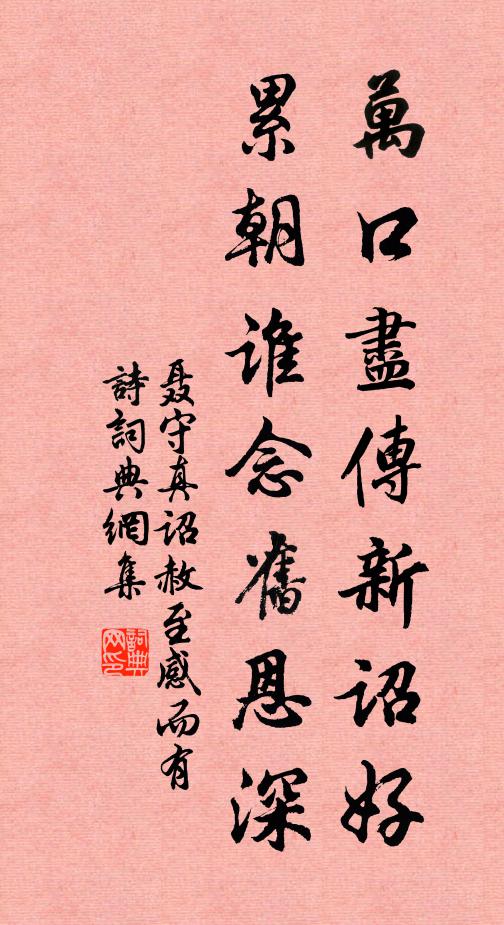 萬口盡傳新詔好
累朝誰念舊恩深
聂守真诏赦至感而有
詩詞典網集
詞典网印